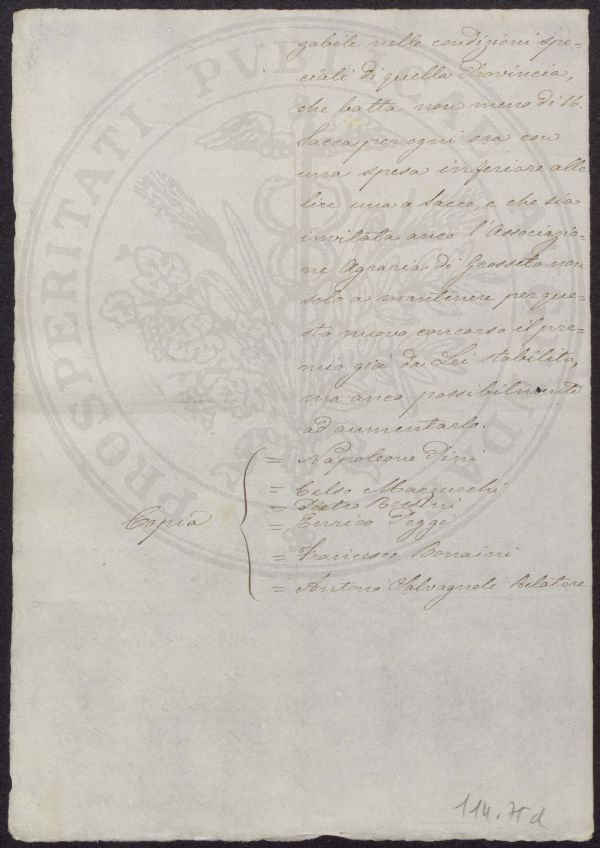 gabile nelle condizioni spe=
ciali di quella Provincia,
che batta non meno di 16.
Sacca per ogni ora con
una spesa inferiore alle
lire una a Sacco, e che sia
invitata anco l'Associazio=
ne Agraria di Grosseto non
solo a mantenere per que=
sto nuovo concorso il pre=
mio già da Lei stabilito,
ma anco possibilmente
ad aumentarlo.
= Napoleone Pini
= Celso Marzucchi
= Pietro
= Enrico Poggi
Copia
= Francesco Bonaini
= Antonio Salvagnoli Relatore
114. d
PROSPERITATI PUBLICAE